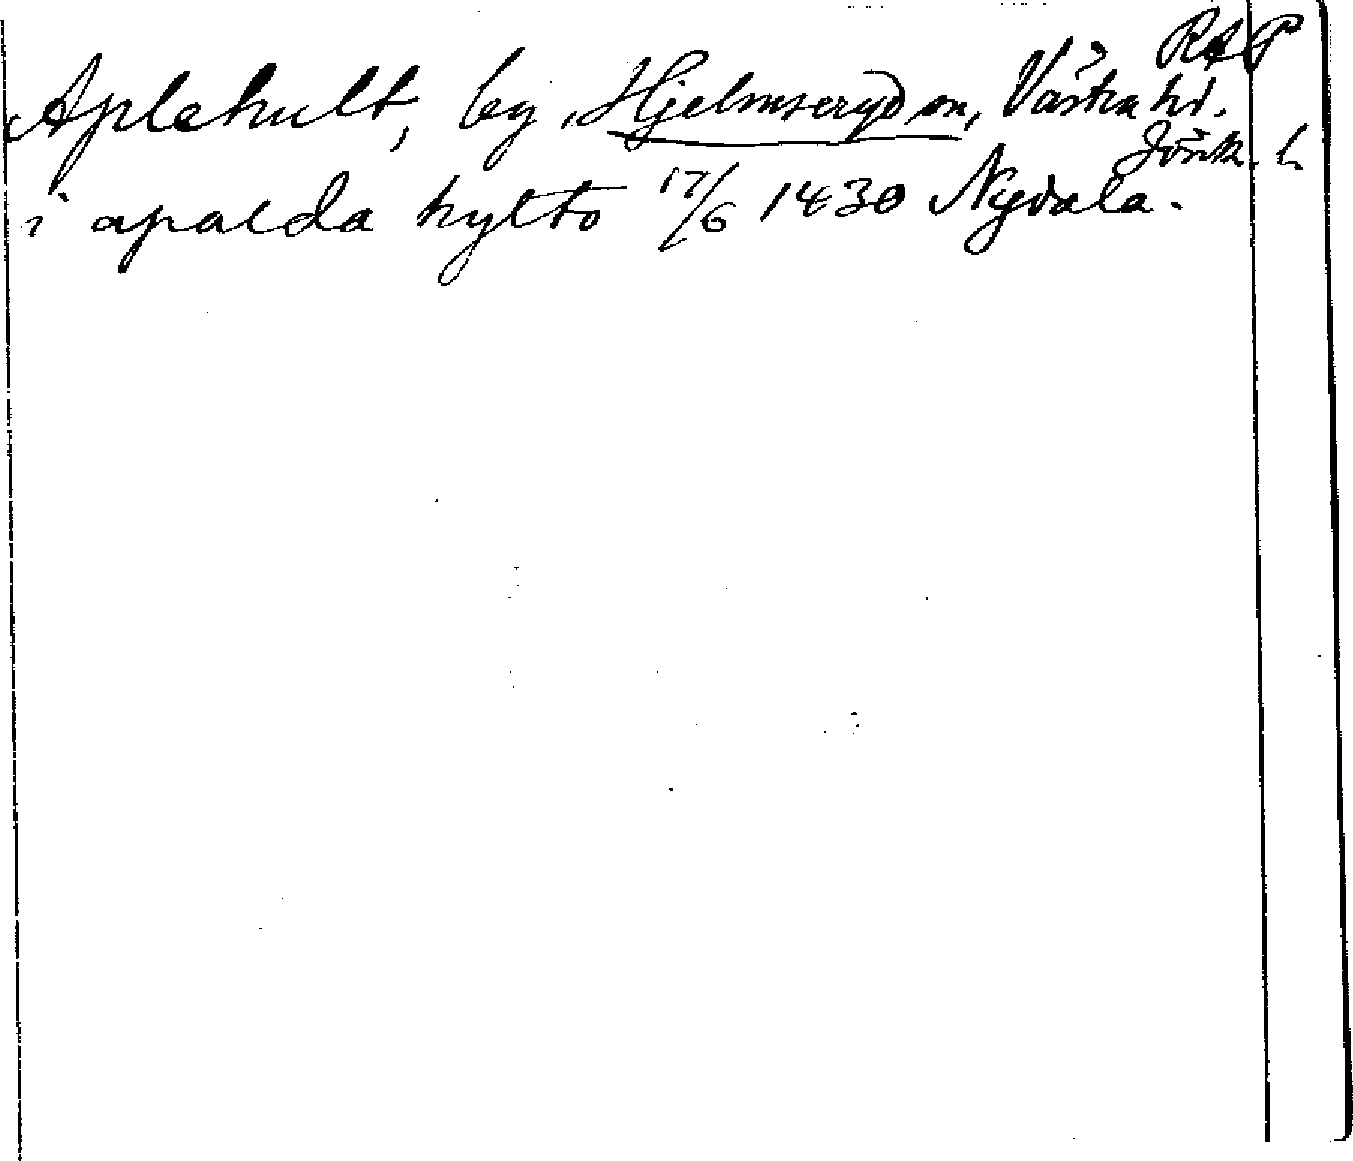 RAP
Aplehult, by, Hjelmseryd sn, Västra hd.
Jönk. l
i apalda hylto 17/6 1430 Nydala.